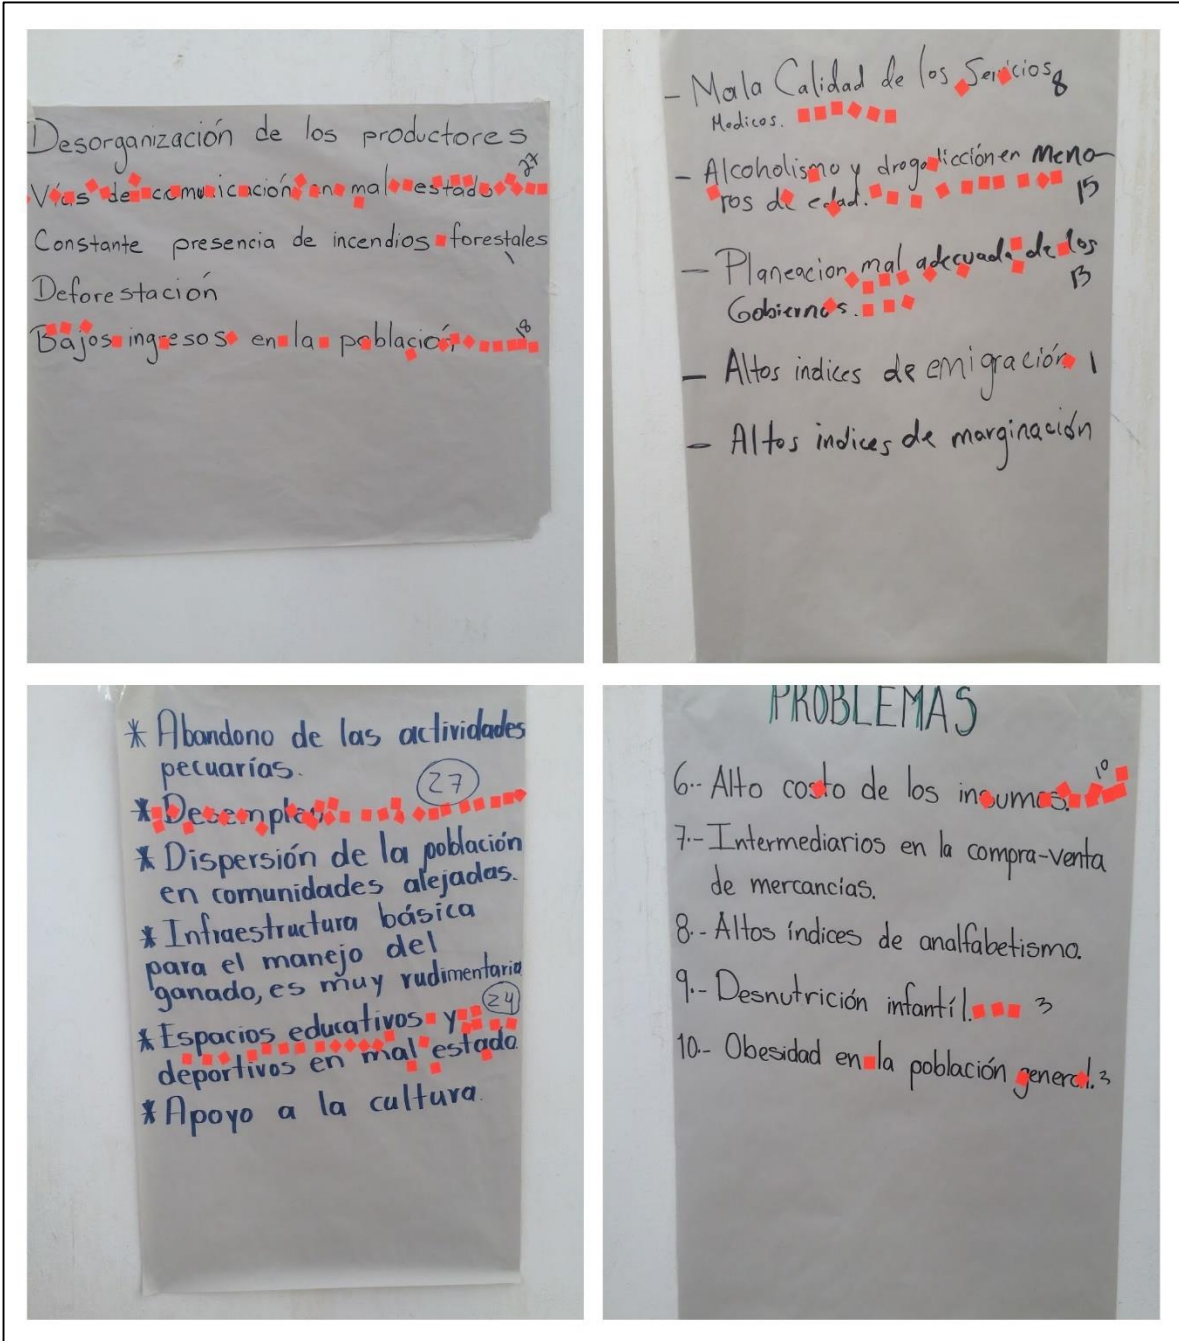 Desorganización de los productores
Vías de comunicación en mal estado 27
Constante presencia de incendios forestales
1
Deforestación
Bajos ingresos en la población 18
- Mala Calidad de los Servicios 8
Medicos.
- Alcoholismo y drogadicción en Meno-
ros de edad. 15
- Planeacion mal adecuada de los
Gobiernos. 13
- Altos indices de emigración 1
- Altos indices de marginación
* Abandono de las actividades
pecuarías.
27
* Desempleo
* Dispersión de la población
en comunidades alejadas.
* Infraestructura básica
para el manejo del
ganado, es muy rudimentaria
24
* Espacios educativos y
deportivos en mal estado
* Apoyo a la cultura.
PROBLEMAS
6.- Alto costo de los insumos. 10
7.- Intermediarios en la compra-venta
de mercancias.
8.- Altos índices de analfabetismo.
9.- Desnutrición infantíl. 3
10.- Obesidad en la población general. 3